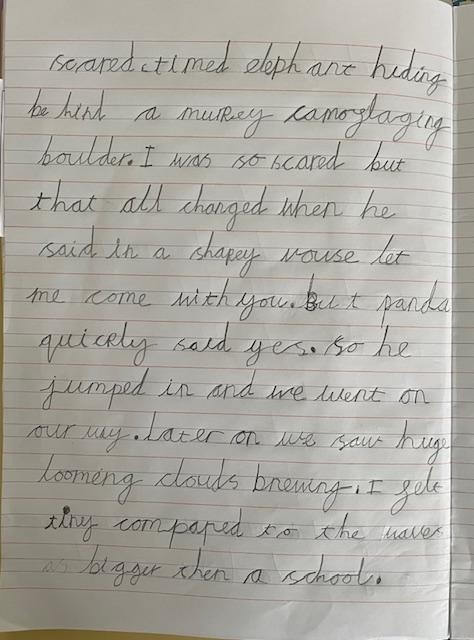 scared, timed elephant hiding
be hind a murkey camoglaging
boulder. I was so scared but
that all changed when he
said in a shapey vouse let
me come with you. But panda
quickly said yes. so he
jumped in and we went on
our way. later on we saw huge
looming clouds brewing. I felt
tiny compared to the waves
as bigger then a school.